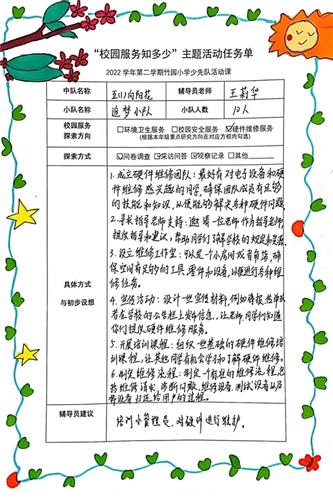 “校园服务知多少”主题活动任务单
2022 学年第二学期竹园小学少先队活动课
中队名称 五(1)向阳花 辅导员老师 王莉华
小队名称 追梦小队 小队人数 12人
校园服务探索方向 □环境卫生服务 □校园安全服务 ☑硬件维修服务
(根据本年级重点研究方向在对应方框内勾选)
探索方式 ☑问卷调查 ☑采访问答 ☑观察记录 □其他
具体方式与初步设想
1.成立硬件维修团队：最好有对电子设备和硬
件维修感兴趣的同学，确保团队成员有足够
的技能和知识，以便能够解决各种硬件问题。
2.寻求指导老师支持：邀请一位老师作为指导老师，
提供指导和建议，帮助同学们了解学校的规定和资源
3.设立维修工作室：可以是个小房间或者角落，确
保空间有足够的工具、零件和设备，以便进行各种维
修任务。
4.宣传活动：设计一些宣传材料，例如海报、传单或
者在学校的公告栏上发布信息，让老师、同学们知道
你们提供硬件维修服务。
5.开展培训课程：组织一些基础的硬件维修培
训课程，让其他同学有机会学习和了解硬件维修。
6.制定维修流程：制定一个标准的维修流程，包
括维修请求、诊断问题、维修设备、测试设备以及
将设备归还给用户的过程。
辅导员建议 培训小管理员，对硬件进行维护。